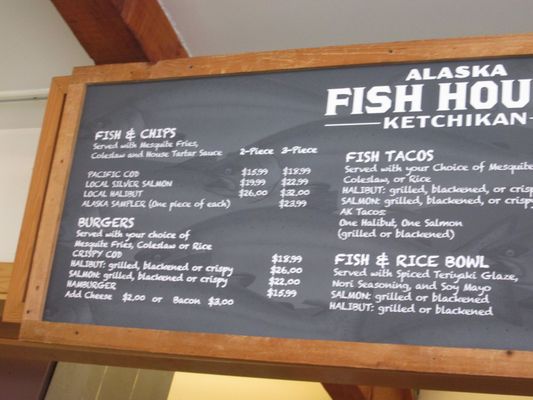 ALASKA
FISH HOU
KETCHIKAN
FISH & CHIPS
Served with Mesquite Fries,
Coleslaw and House Tartar Sauce 2-Piece 3-Piece
PACIFIC COD $15.99 $18.99
LOCAL SILVER SALMON $19.99 $22.99
LOCAL HALIBUT $26.00 $32.00
ALASKA SAMPLER (One piece of each) $23.99
BURGERS
Served with your choice of
Mesquite Fries, Coleslaw or Rice
CRISPY COD $18.99
HALIBUT: grilled, blackened or crispy $26.00
SALMON: grilled, blackened or crispy $22.00
HAMBURGER $15.99
Add Cheese $2.00 or Bacon $3.00
FISH TACOS
Served with your Choice of Mesquite
Coleslaw, or Rice
HALIBUT: grilled, blackened, or crisp
SALMON: grilled, blackened, or crispy
AK Tacos:
One Halibut, One Salmon
(grilled or blackened)
FISH & RICE BOWL
Served with Spiced Teriyaki Glaze,
Nori Seasoning, and Soy Mayo
SALMON: grilled or blackened
HALIBUT: grilled or blackened